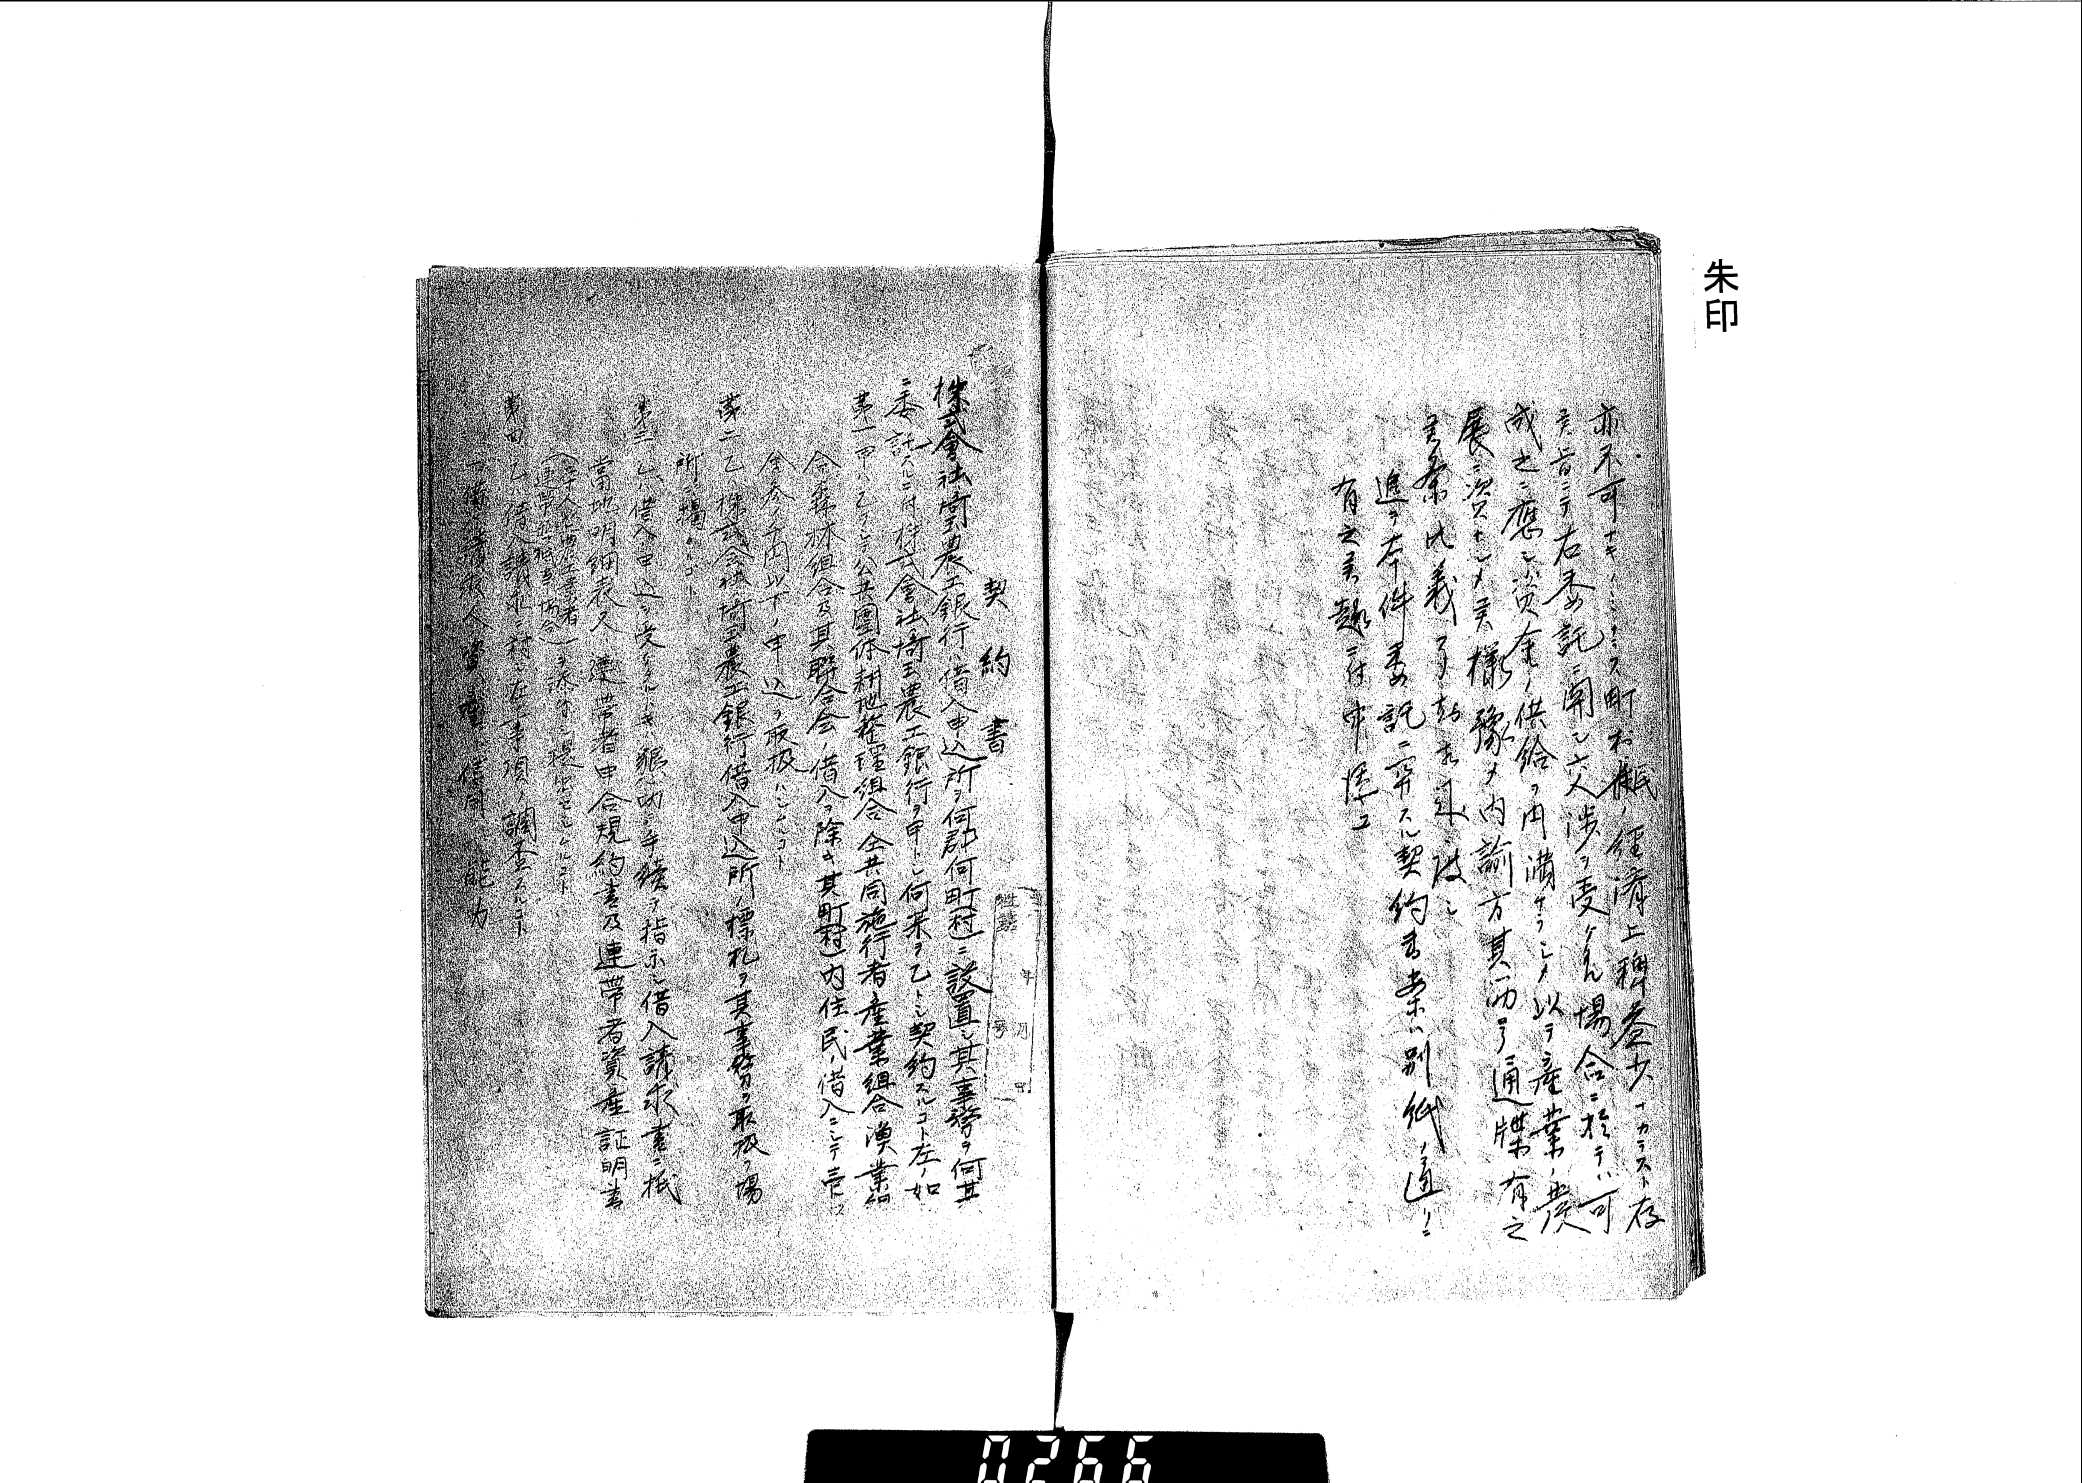 朱印
亦不可ナキノミナラス町村民ノ経済上稗益少ナカラスト存
候旨ニテ右委託ニ関シ交渉ヲ受ケタル場合ニ於テハ可
成之ニ應シ資金ノ供給ヲ円満ナラシメ以テ産業ノ発
展ニ資セシメ候様豫メ内諭方其筋ヨリ通牒有之
候条此義御了知相成度
進テ本件委託ニ関スル契約書案ハ別紙ノ通リニ
有之候趣ニ付申添フ
契約書
株式會社埼玉農工銀行借入申込所ヲ何郡何町(村)ニ設置シ其事務ヲ何某
ニ委託スルニ付株式會社埼玉農工銀行ヲ甲トシ何某ヲ乙トシ契約スルコト左ノ如
第一 甲ハ乙ヲシテ公共團体耕地整理組合仝共同施行者産業組合漁業組
合森林組合及其聯合会ノ借入ヲ除キ其町(村)内住民ノ借入ニシテ壱口
金参千円以下ノ申込ヲ取扱ハシムルコト
第二 乙ハ株式会社埼玉農工銀行借入申込所ノ標札ヲ其事務ヲ取扱フ場
所ニ掲クルコト
第三 乙ハ借入申込ヲ受ケタルトキハ懇切ニ手續ヲ指示シ借入請求書ニ抵
當地明細表又ハ連帯者申合規約書及連帯者資産証明書
(二十人以上農工業者ノ連帯無抵当ノ場合)ヲ添付シ提出セシムルコト
第四 乙ハ借入請求ニ対シ左ノ事項ヲ調査スルコト
一、借入請求人ノ資産、信用、能力
0266